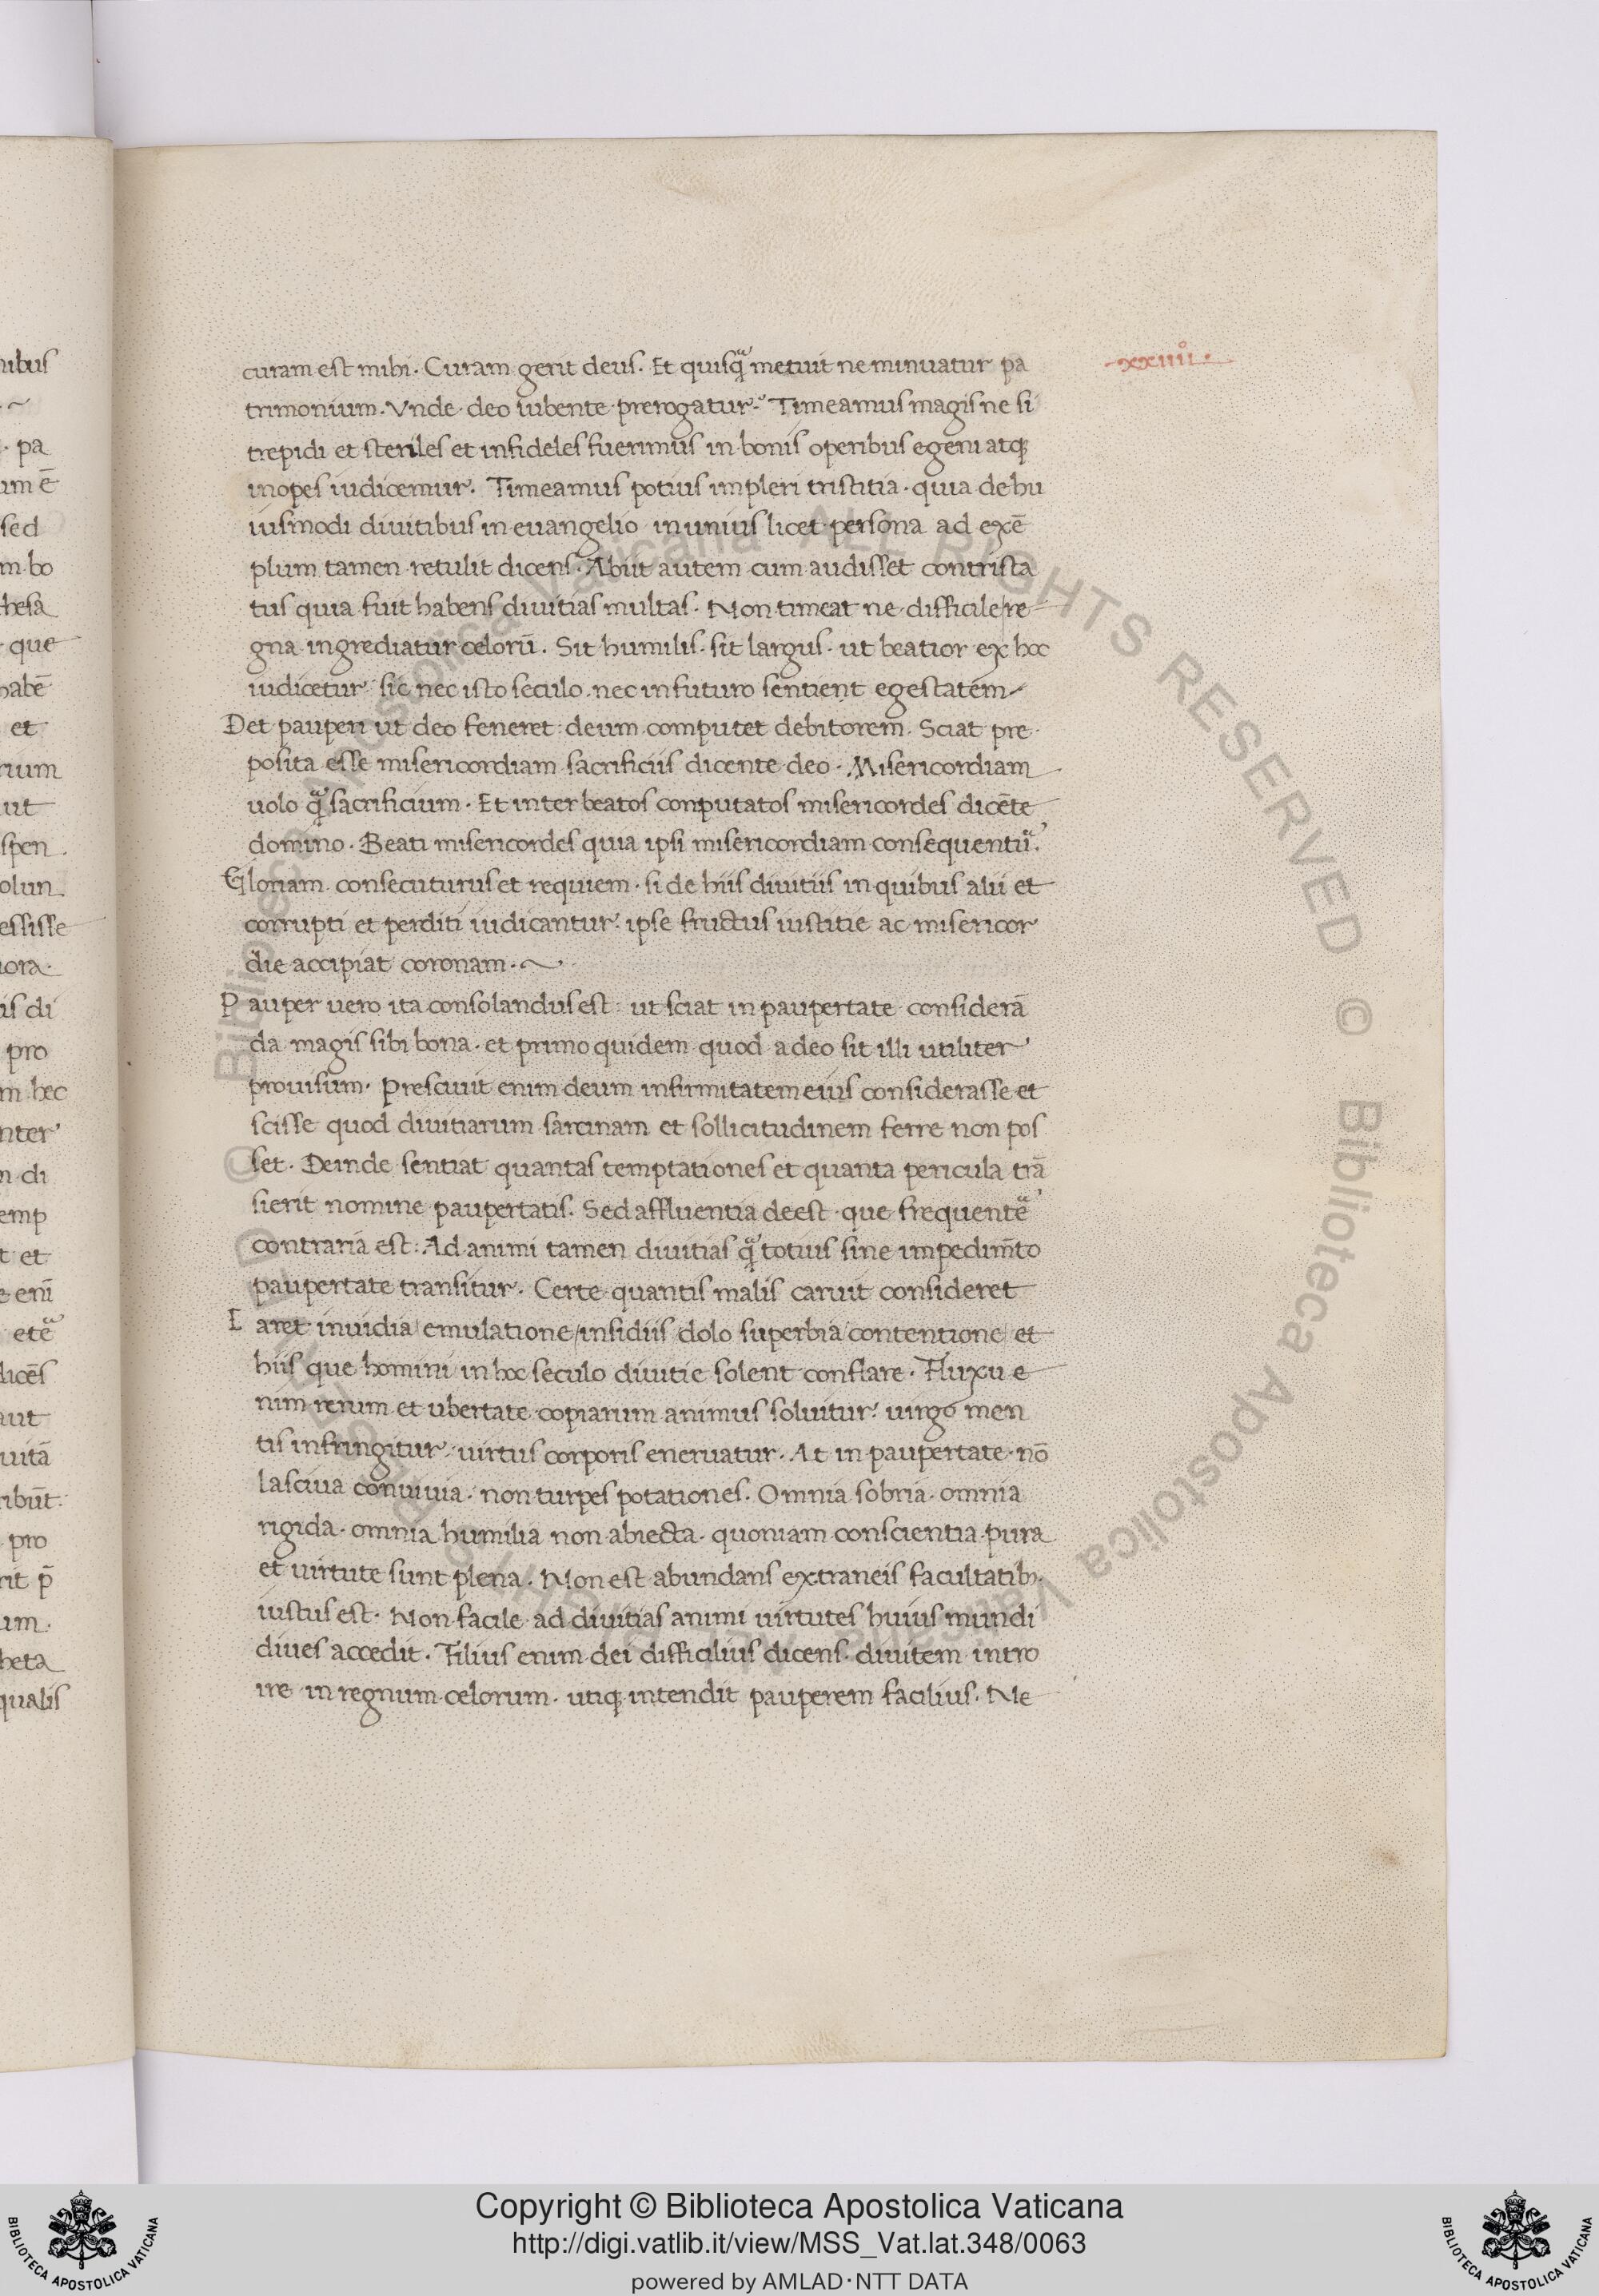 xxiiii°.
curam est mihi. Curam gerit deus. Et quisq̃ metuit ne minuatur pa
trimonium. Vnde deo iubente prerogatur. Timeamus magis ne si
trepidi et steriles et infideles fuerimus in bonis operibus egeni atq;
inopes iudicemur. Timeamus potius impleri tristitia. quia de hu
iusmodi diuitibus in euangelio in unius licet persona ad exē
plum tamen retulit dicens. Abiit autem cum audisset contrista
tus quia fuit habens diuitias multas. Non timeat ne difficile re
gna ingrediatur celorū. Sit humilis. sit largus. ut beatior ex hoc
iudicetur. sic nec isto seculo. nec in futuro sentient egestatem
Det pauperi ut deo feneret: deum computet debitorem. Sciat pre
posita esse misericordiam sacrificiis dicente deo. Misericordiam
uolo q̃ sacrificium. Et inter beatos conputatos misericordes dicēte
domino. Beati misericordes quia ipsi misericordiam consequentur̃.
Gloriam consecuturus et requiem. si de hiis diuitiis in quibus alii et
corrupti et perditi iudicantur. ipse fructus iustitie ac misericor
die accipiat coronam.
Pauper uero ita consolandus est: ut sciat in paupertate considerā
da magis sibi bona. et primo quidem quod a deo sit illi utiliter
prouisum. Presciuit enim deum infirmitatem eius considerasse et
scisse quod diuitiarum sarcinam et sollicitudinem ferre non pos
set. Deinde sentiat quantas temptationes et quanta pericula trā
sierit nomine paupertatis. Sed affluentia deest que frequentẽ
contraria est: Ad animi tamen diuitias q̃ totius sine impedim̄to
paupertate transitur. Certe quantis malis caruit consideret
Earet inuidia/emulatione/insidiis dolo superbia/contentione/et
hiis que homini in hoc seculo diuitie solent conflare. Fluxu e
nim rerum et ubertate copiarum animus soluitur. uirgo men
tis infringitur. uirtus corporis eneruatur. At in paupertate nō
lasciua conuiuia. non turpes potationes. Omnia sobria. omnia
rigida. omnia humilia non abiecta. quoniam conscientia pura
et uirtute sunt plena. Non est abundans extraneis facultatib;.
iustus est. Non facile ad diuitias animi uirtutes huius mundi
diues accedit. Filius enim dei difficilius dicens. diuitem intro
ire in regnum celorum. utiq; intendit pauperem facilius. Ne
Copyright © Biblioteca Apostolica Vaticana
http://digi.vatlib.it/view/MSS_Vat.lat.348/0063
powered by AMLAD·NTT DATA